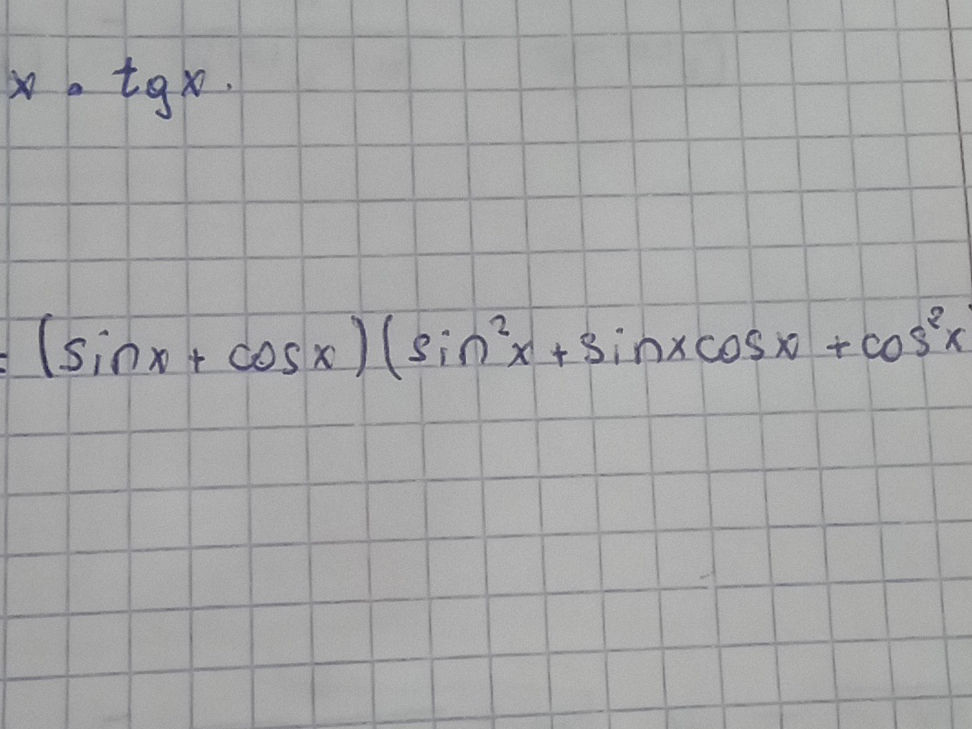 x • tgx.
= (sinx + cosx)(sin²x + sinxcosx + cos²x